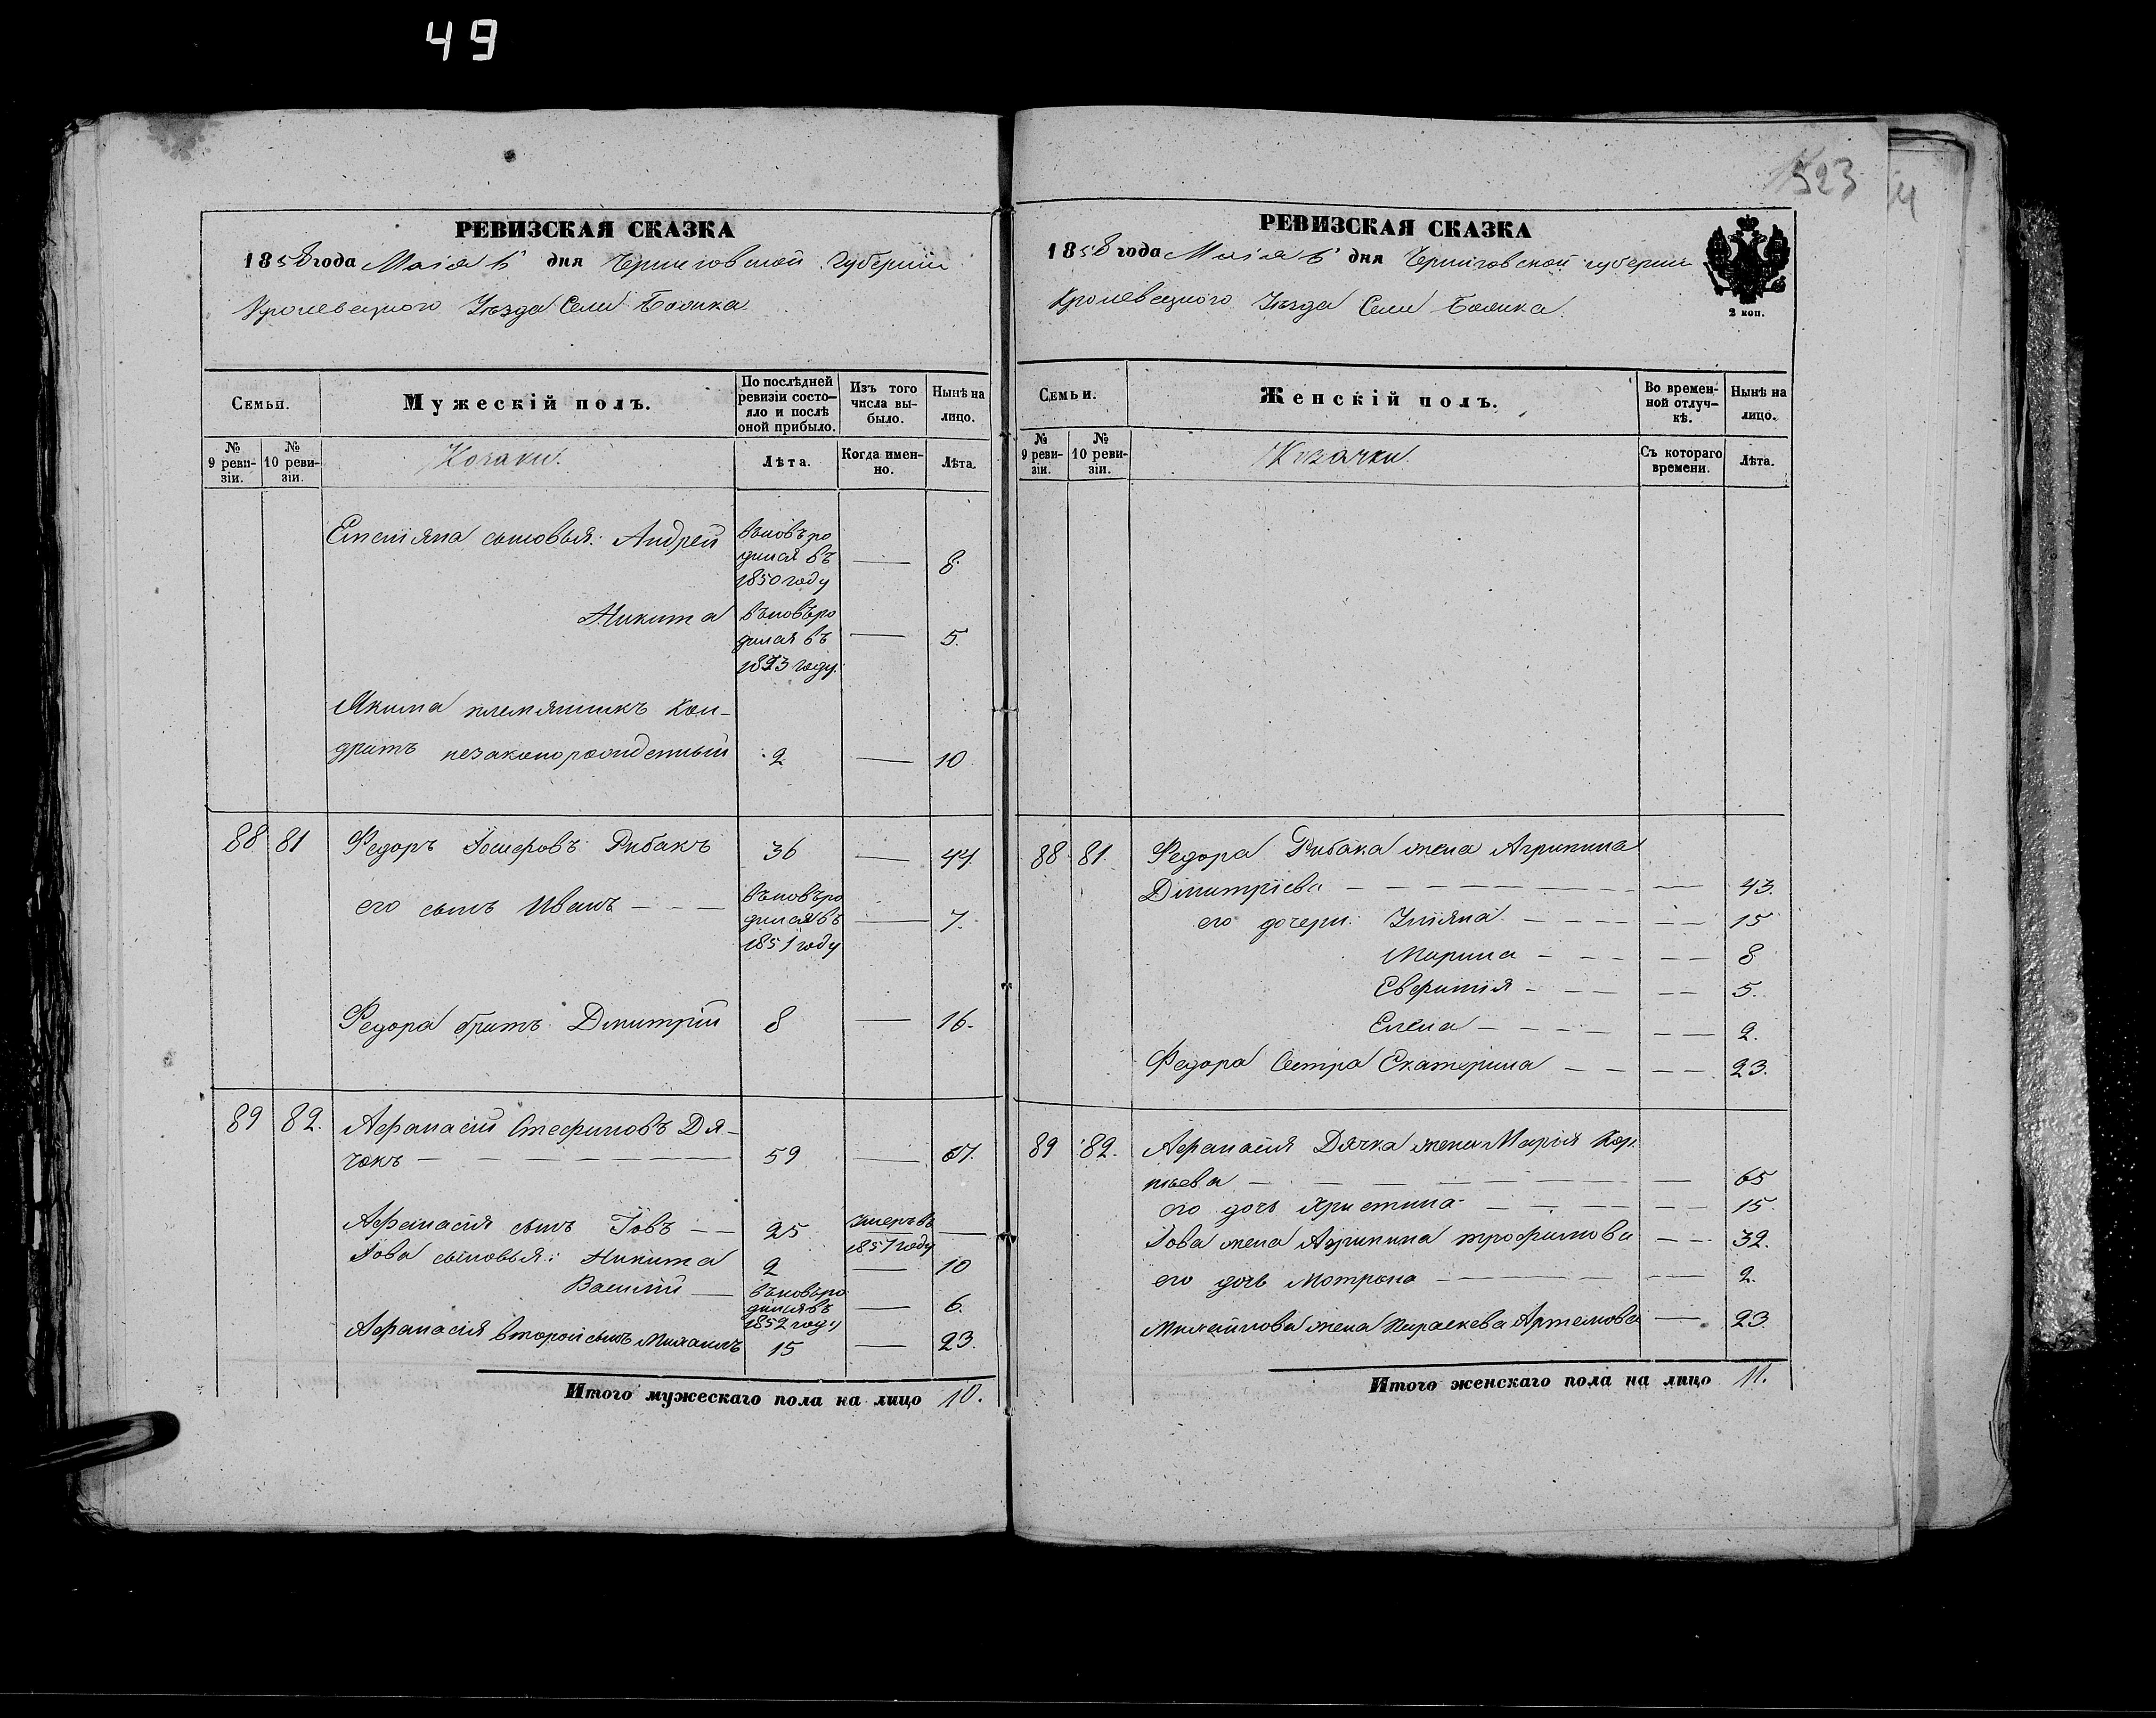 49
523
РЕВИЗСКАЯ СКАЗКА
1858 года Маія 6 дня Черниговской Губерніи
Кролевецкого Уѣзда Села
Семьи.
Мужескій полъ.
По послѣдней ревизіи состояло и послѣ оной прибыло.
Изъ того числа выбыло.
Нынѣ на лицо.
№ 9 ревизіи.
№ 10 ревизіи.
Козаки.
Лѣта.
Когда именно.
Лѣта.
Емеліяна сыновья: Андрей вновь родился въ 1850 году — 8
Никита вновь родился въ 1853 году — 5.
Якима племянникъ Кон-
дратъ незаконорожденный 2 — 10
88 81 Федоръ Рибакъ 36 — 44
его сынъ Иванъ — — — вновь родился въ 1851 году — 7.
Федора братъ Дмитрій 8 — 16.
89 82. Афанасій Стефановъ Дя-
чокъ — — — 59 — 67.
Афанасія сынъ Іовъ — — 25 умеръ въ 1857 году —
Іова сыновья: Никита 2 — 10
Василій — вновь родился въ 1852 году — 6.
Афанасія второй сынъ Михаилъ 15 — 23.
Итого мужескаго пола на лицо 10.
РЕВИЗСКАЯ СКАЗКА
1858 года Маія 6 дня Черниговской губерніи
Кролевецкого Уѣзда Села
2 коп.
Семьи.
Женскій полъ.
Во временной отлучкѣ.
Нынѣ на лицо.
№ 9 ревизіи.
№ 10 ревизіи.
Козачки.
Съ котораго времени.
Лѣта.
88 81. Федора Рибака жена Агрипина
Дмитріева — — — 43.
его дочери: Уліяна — — — 15
Марина — — — 8
Евфимія — — — 5.
Елена — — — 2.
Федора Сестра Екатерина — — — 23.
89 82. Афанасія Дячка жена Марія Кор-
нѣева — — — 65
его дочь Христина — — — 15.
Іова жена Агрипина Трофимова — — 32.
его дочь Мотрона — — — 2.
Михайлова жена Параскева Артемова — 23.
Итого женскаго пола на лицо 11.